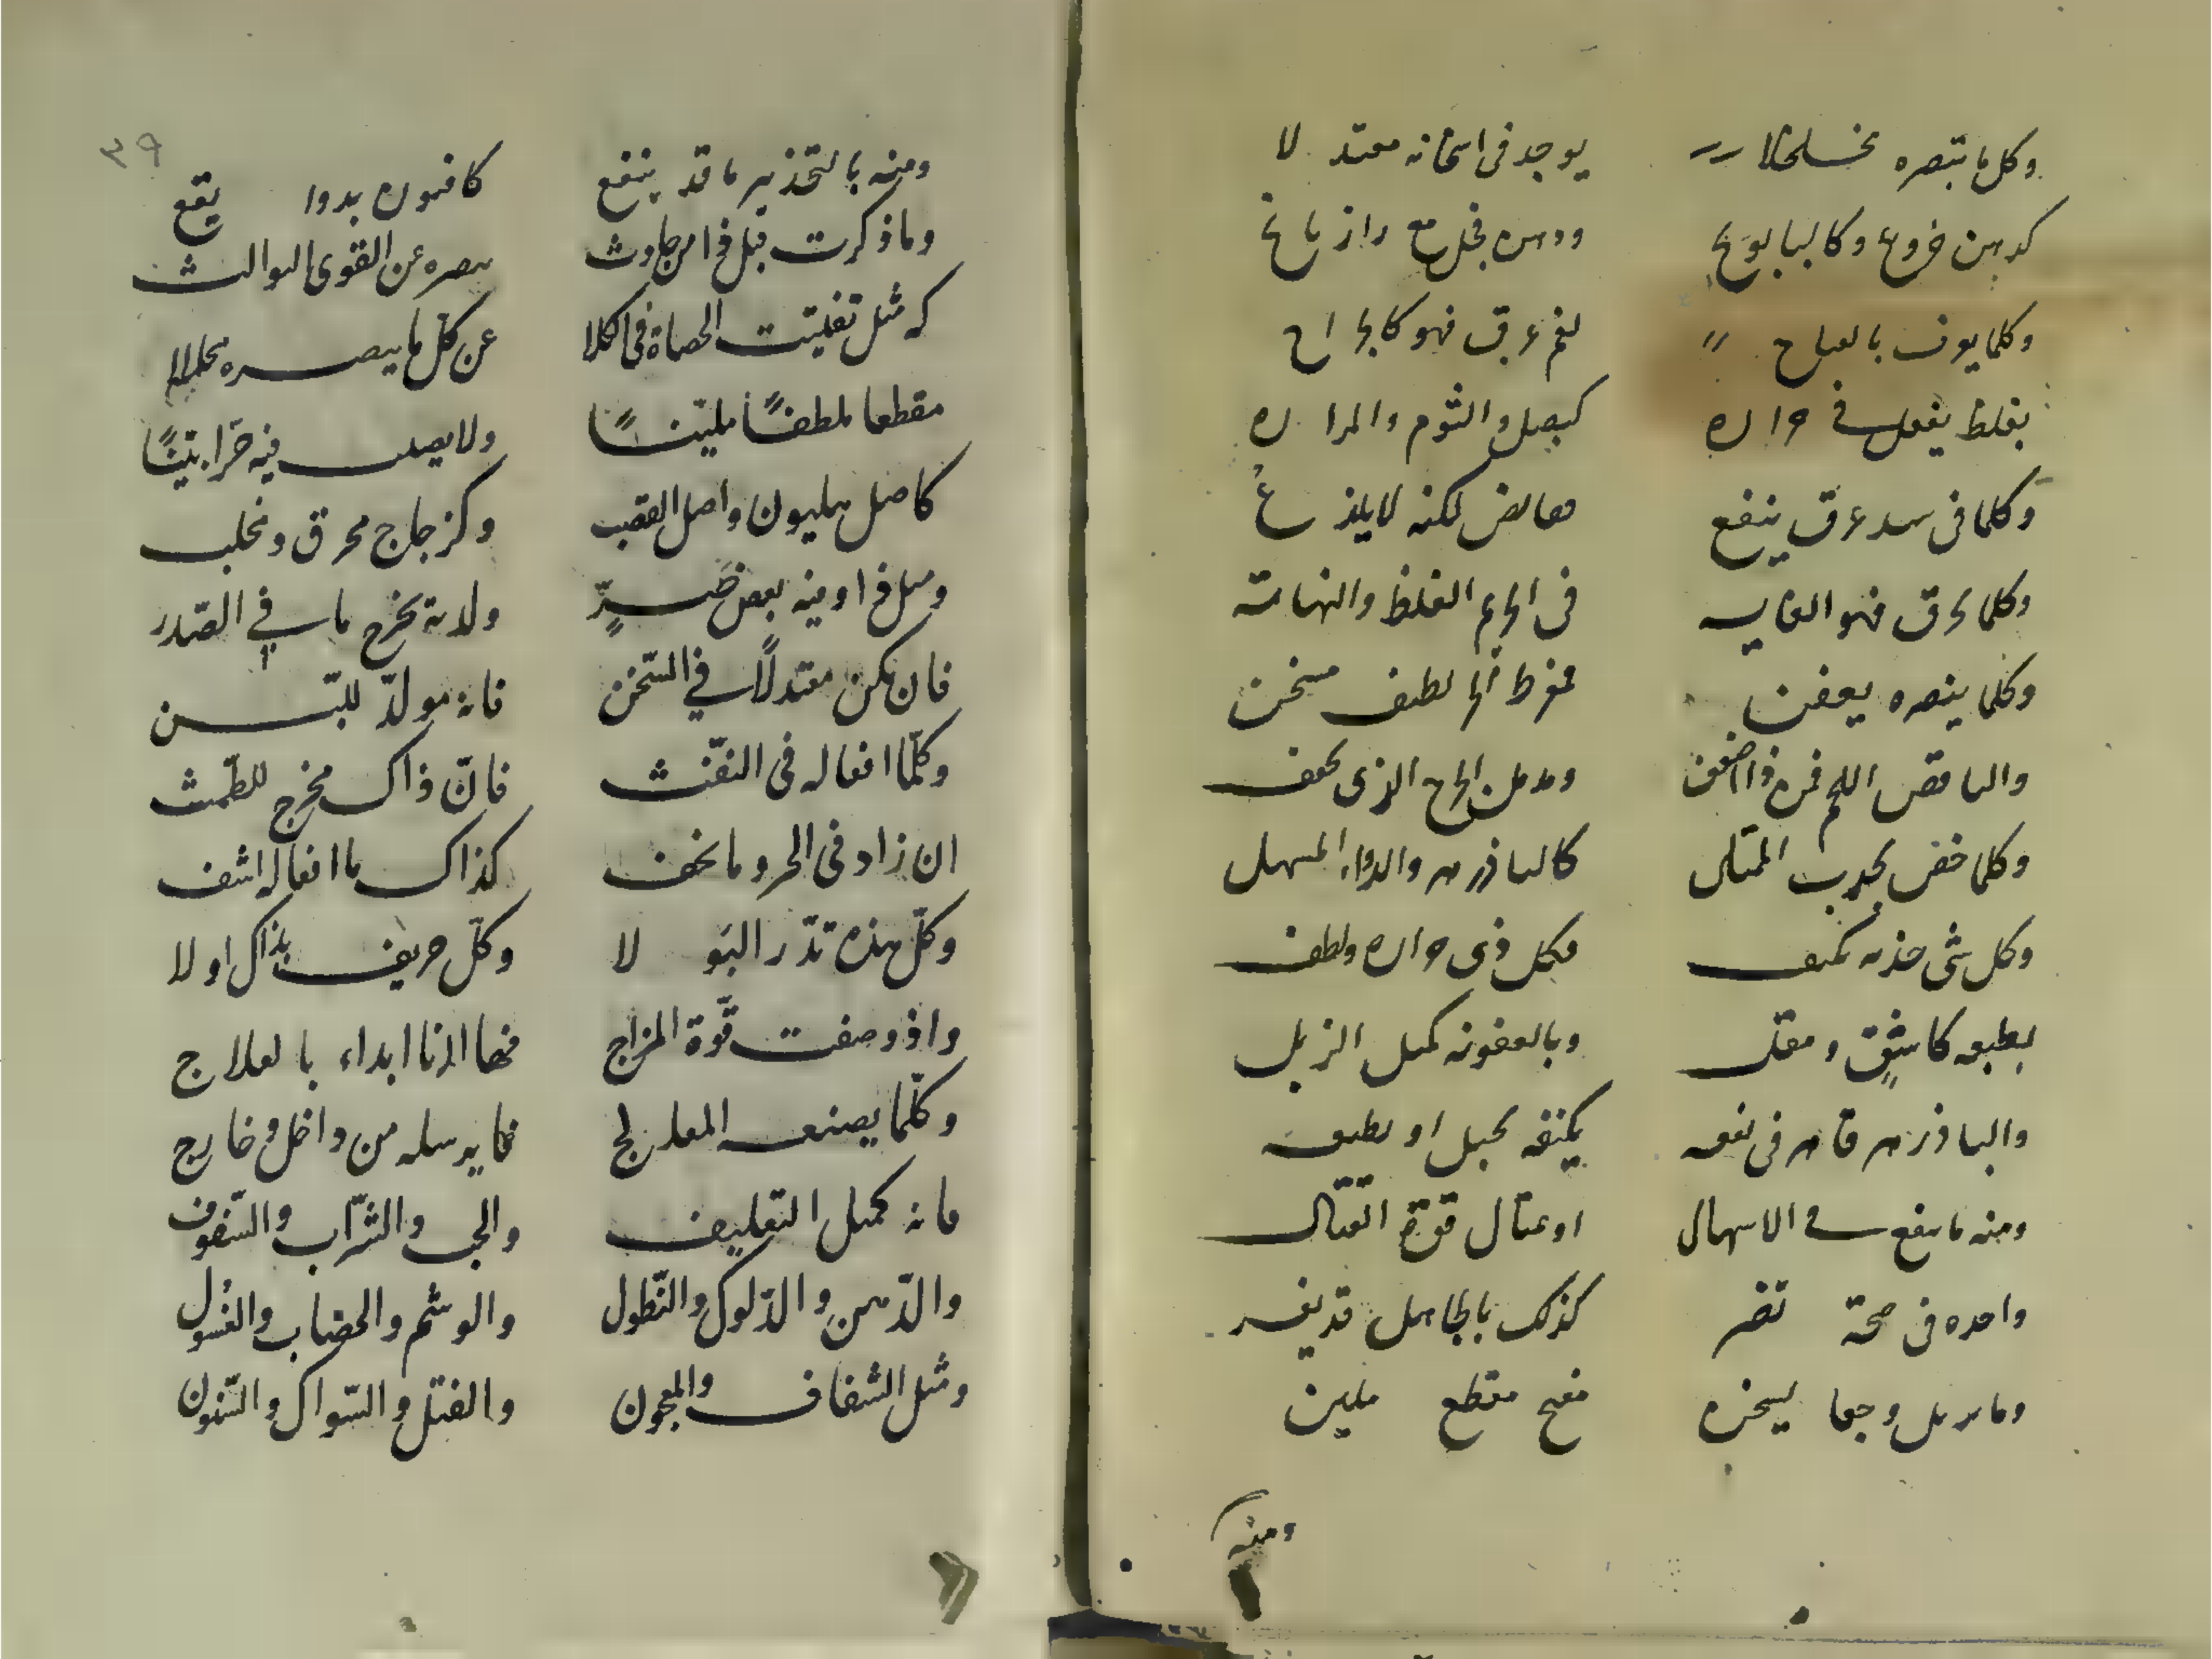 وكل ما تبصره مخلخلا يوجد في اسخانه معتدلا
كدهن خروع وكالبابونج ودهن فجل مع رازيانج
وكلما يعرف بالفتاح لفم عرق فهو كالجراح
بغلظ يفعل في حراره كبصل والثوم والمراره
وكلما في سد عرق ينفع لكنه لا يلذع
وكلما يحرق فهو الغايه في الجرم الغلظ والنهايه
وكلما ينصره يعفن مفرط لطيف مسخن
والناقص اللحم الجرح الذي يجفف
وكلما خفض بجذب كالبادزهر والدواء المسهل
وكل شي جذبه فكل ذي حراره ولطف
بطبعه كاشق ومقل وبالعفونه كمثل الزبل
والبادزهر قاهر في نفعه بجبل او بطبعه
ومنه ما ينفع في الاسهال قوة القتال
واحده في صحة تضر كذلك بالجاهل قد يغر
وجعا ليسخن مفتح مقطع ملين
ومنه
٣٩
ومنه بالتخذير ما قد ينفع كافيون بدوا يقع
وما ذكرت قبل ذا من حادث عن القوى الثوالث
كه مثل تفتيت الحصاة في الكلا عن كل ما يبصره محللا
مقطعا ملطفًا مليّنًا ولا يصل فيه حرا بيّنًا
كاصل هليون واصل القصب وكزجاج محرق ومحلب
ومثل ذا وفيه بعض ضرٍّ يخرج ما في الصّدر
فان يكن معتدلًا في السّخن فانه مولّد للّبن
وكلّما افعاله في النفّث فانّ ذاك مخرج للطّمث
ان زاد في الحر وما يخف كذاك ما افعاله اشف
وكلّ هذه تدّر البولا وكلّ حريف بذاك اولا
واذ وصفت قوّة المزاج فها انا ابداء بالعلاج
وكلّما يصنعه المعالج مما يرسله من داخل وخارج
فانه كمثل التعليف والحب والشّراب والسّفوف
والدّهن والدّلوك والنّطول والوشم والخضاب والغسول
ومثل الشفاف والمعجون والفتل والسّواك والسّنون